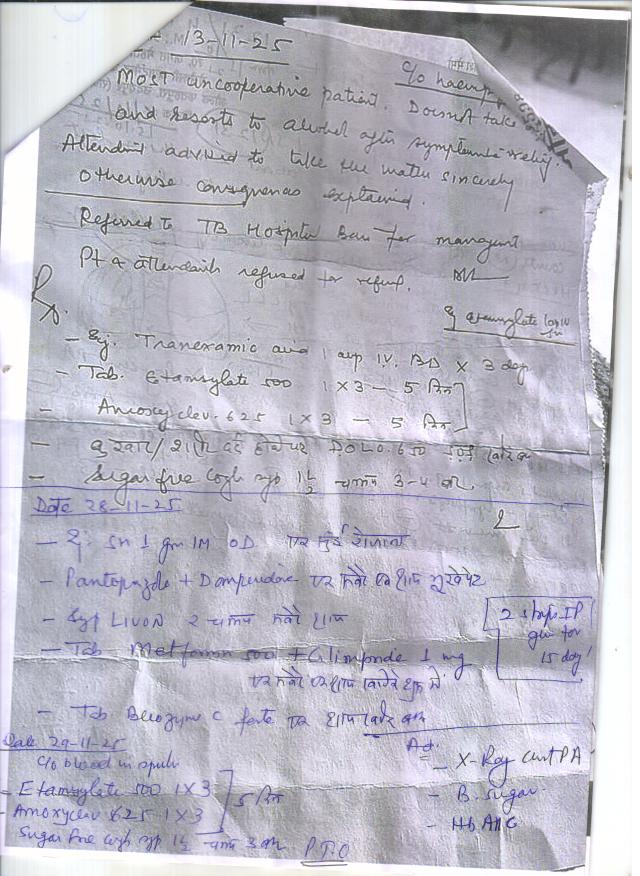 13-11-25
c/o haemop
Most uncooperative patient. Doesn't take
and resorts to alcohol after symptomatic relief.
Attendant advised to take the matter sincerely
otherwise consequences explained.
Referred to TB Hospital for managment
Pt & attendants refused for referral.
Rx.
Etamsylate
- Inj. Tranexamic acid 1 amp I.V. BD x 3 days
- Tab. Etamsylate 500 1 x 3 - 5 दिन
- Amoxyclav. 625 1 x 3 - 5 दिन
- बुखार/ दर्द होने पर DOLO. 650
- Sugar free cogh syp 1½ चम्मच 3-4 बार
Date 28-11-25
- Inj Sn 1 gm IM OD एक सुई रोजाना
- Pantopazole + Domperidone एक सवेरे एक शाम भूखे पेट
- Syp LIVON 2 चम्मच सवेरे शाम
2 strips IP
given for
15 days
- Tab Metformin 500 + Glimipride 1 mg
एक सवेरे एक शाम
- Tab Becozyme C forte एक शाम
Date 29-11-25
c/o blood in sputum
Ad.
- X-Ray chest PA
- Etamsylate 500 1 x 3
- Amoxyclav 625 1 x 3
5 दिन
- B. Sugar
- HbA1C
Sugar free cogh syp 1½ चम्मच 3 बार
P.T.O